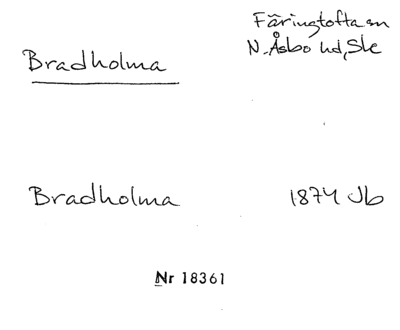 Färingtofta sn
Bradholma
N. Åsbo hd, Ske
Bradholma 1874 Jb
Nr 18361